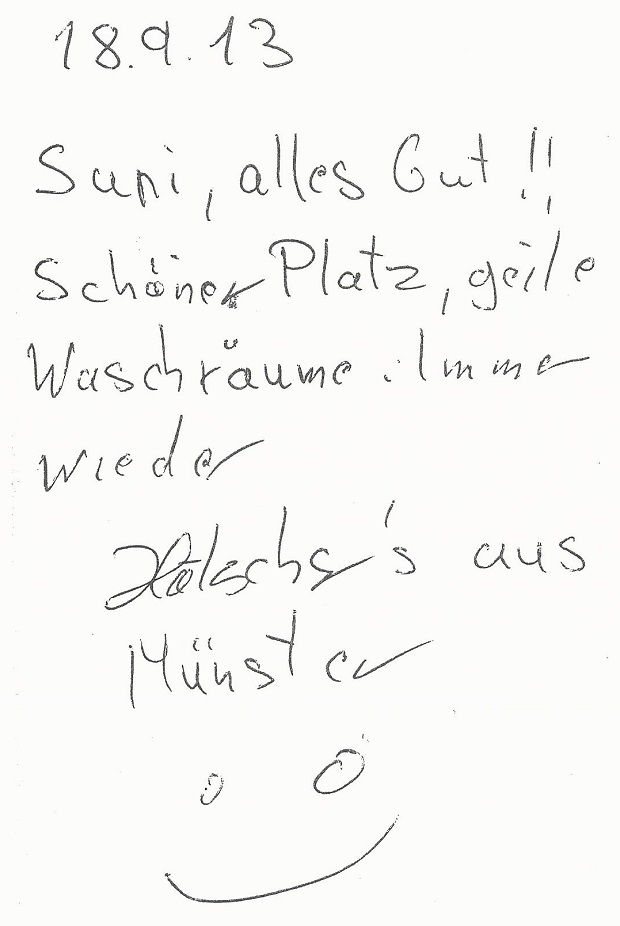 18.9.13
Supi, alles Gut!!
Schöner Platz, geile
Waschräume. Immer
wieder
aus
Münster